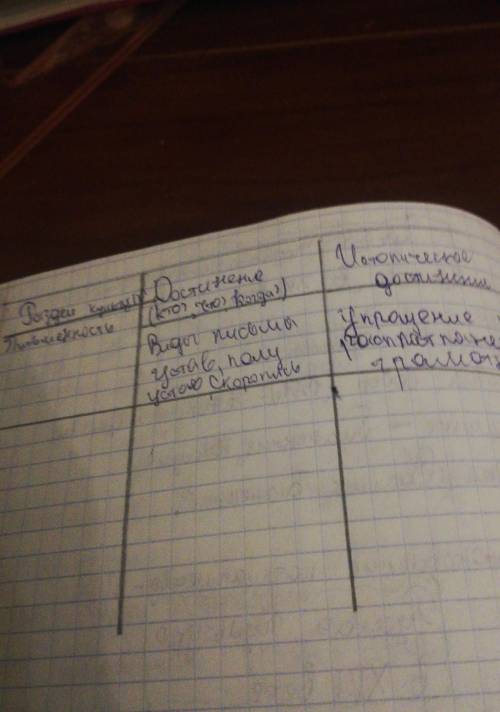 Раздел культуры
Достижение
(кто?, что?, когда?)
Историческое
достижение
Письменность
Виды письмы
устав, полу
устав, скоропись
Упрощение
грамот